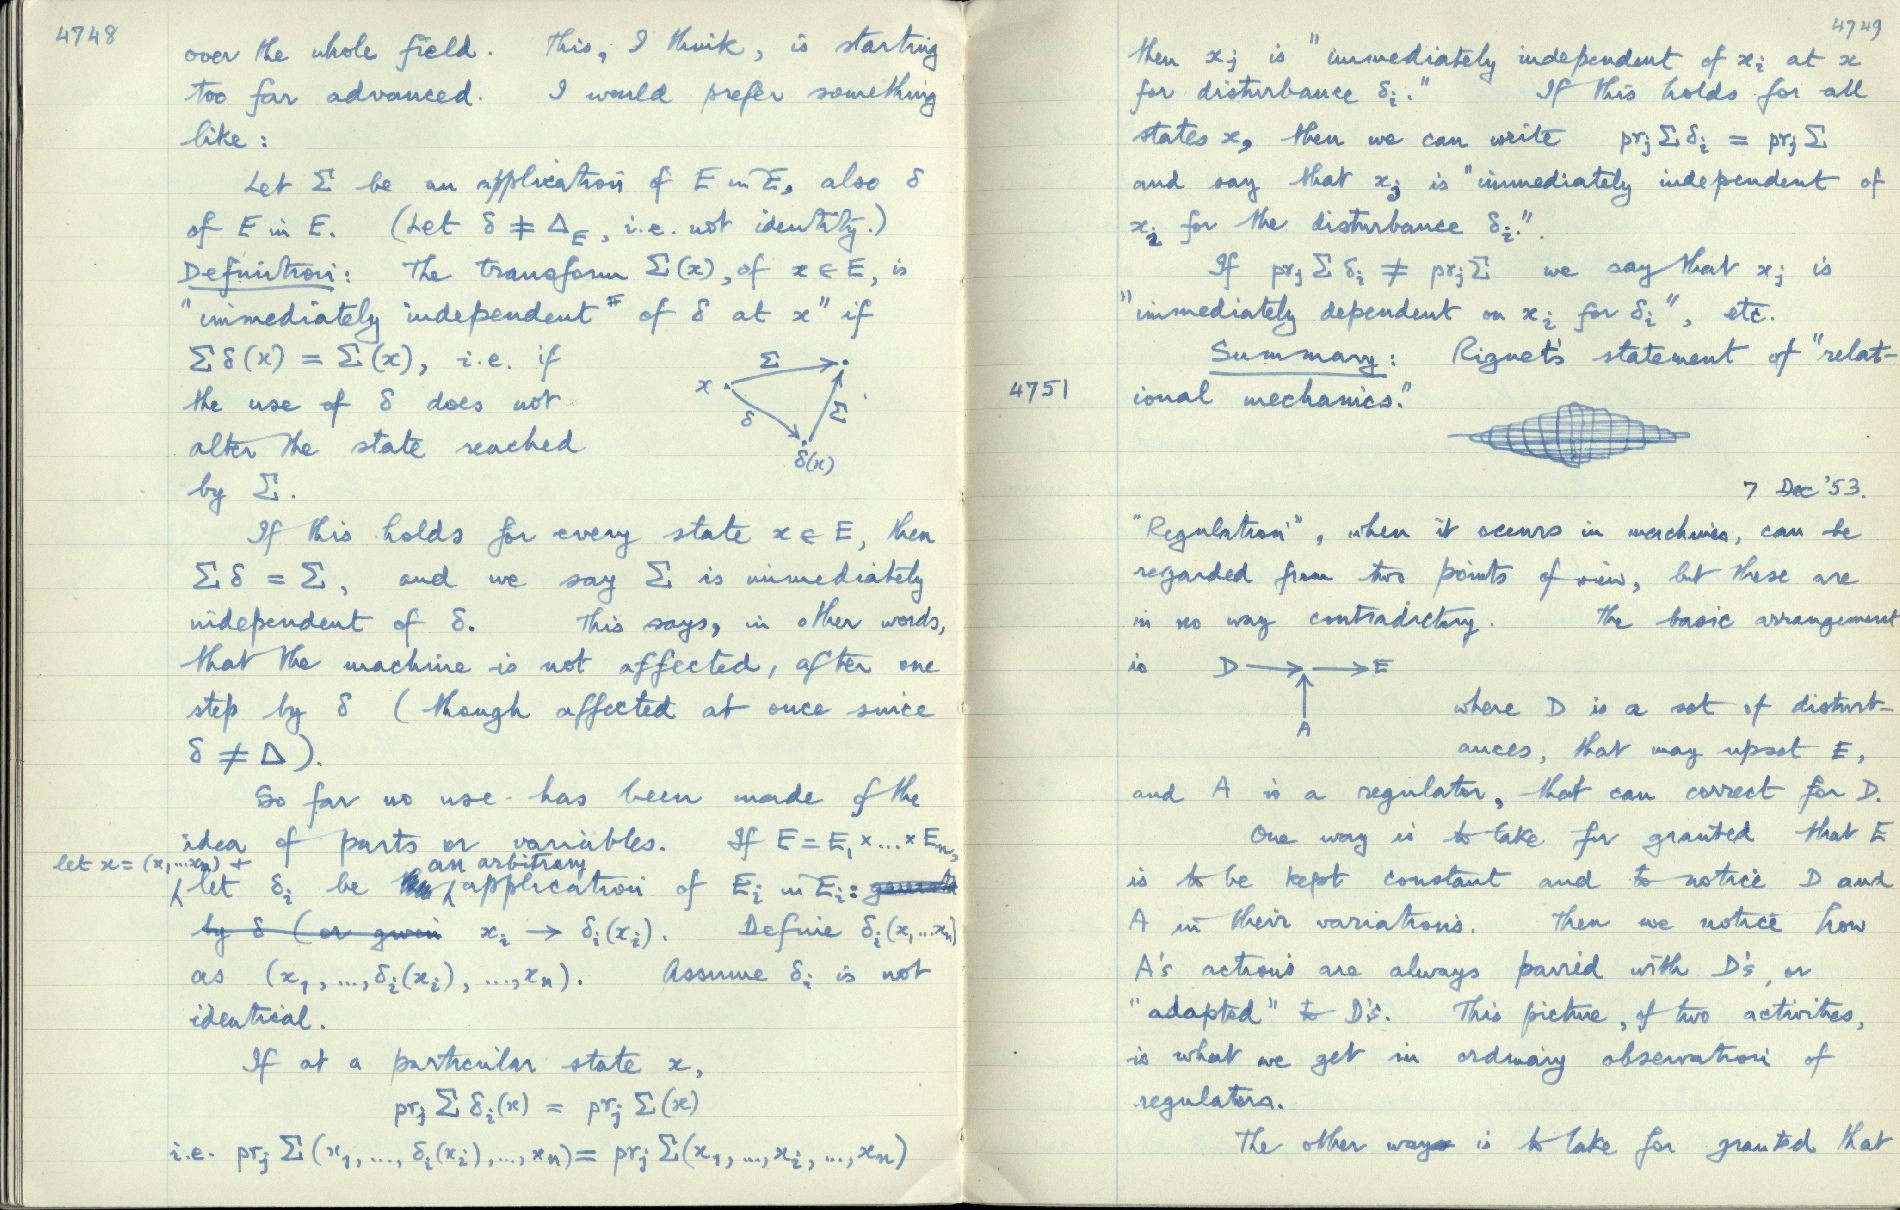 4748
over the whole field. This, I think, is starting
too far advanced. I would prefer something
like:
Let Σ be an application of E in E, also δ
of E in E. (Let δ ≠ Δ_E, i.e. not identity.)
Definition: The transform Σ(x), of x ∈ E, is
"immediately independent" of δ at x" if
Σδ(x) = Σ(x), i.e. if
the use of δ does not
alter the state reached
by Σ.
x Σ
δ Σ
δ(x)
If this holds for every state x ∈ E, then
Σδ = Σ, and we say Σ is immediately
independent of δ. This says, in other words,
that the machine is not affected, after one
step by δ (though affected at once since
δ ≠ Δ).
So far no use has been made of the
idea of parts or variables. If E = E₁ × ... × Eₙ,
let x = (x₁,...xₙ) +
let δᵢ be an arbitrary application of Eᵢ in Eᵢ:
by δ (or given xᵢ → δᵢ(xᵢ). Define δᵢ(x₁...xₙ)
as (x₁, ..., δᵢ(xᵢ), ..., xₙ). Assume δᵢ is not
identical.
If at a particular state x,
prⱼ Σ δᵢ(x) = prⱼ Σ(x)
i.e. prⱼ Σ(x₁, ..., δᵢ(xᵢ), ..., xₙ) = prⱼ Σ(x₁, ..., xᵢ, ..., xₙ)
4749
then xⱼ is "immediately independent of xᵢ at x
for disturbance δᵢ." If this holds for all
states x, then we can write prⱼ Σ δᵢ = prⱼ Σ
and say that xⱼ is "immediately independent of
xᵢ for the disturbance δᵢ".
If prⱼ Σ δᵢ ≠ prⱼ Σ we say that xⱼ is
"immediately dependent on xᵢ for δᵢ", etc.
Summary: Riguet's statement of "relat-
4751 ional mechanics."
7 Dec '53.
"Regulation", when it occurs in machines, can be
regarded from two points of view, but these are
in no way contradictory. The basic arrangement
is D → → E
A
where D is a set of disturb-
ances, that may upset E,
and A is a regulator, that can correct for D.
One way is to take for granted that E
is to be kept constant and to notice D and
A in their variations. Then we notice how
A's actions are always paired with D's, or
"adapted" to D's. This picture, of two activities,
is what we get in ordinary observation of
regulators.
The other way is to take for granted that